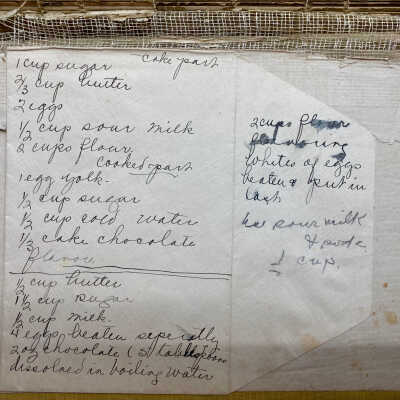 cake part
1 cup sugar
2/3 cup butter
2 eggs
1/2 cup sour milk
2 cups flour
cooked part
1 egg yolk.
1/2 cup sugar
1/2 cup cold water
1/3 cake chocolate
flavor
1/2 cup butter
1 1/2 cup sugar
1/2 cup milk.
4 eggs beaten seperatly
2 oz chocolate (5 tablespoons
dissolved in boiling water
2 cups flour
flavouring
Whites of eggs
beaten & put in
last
sour milk
& soda
1 cup.